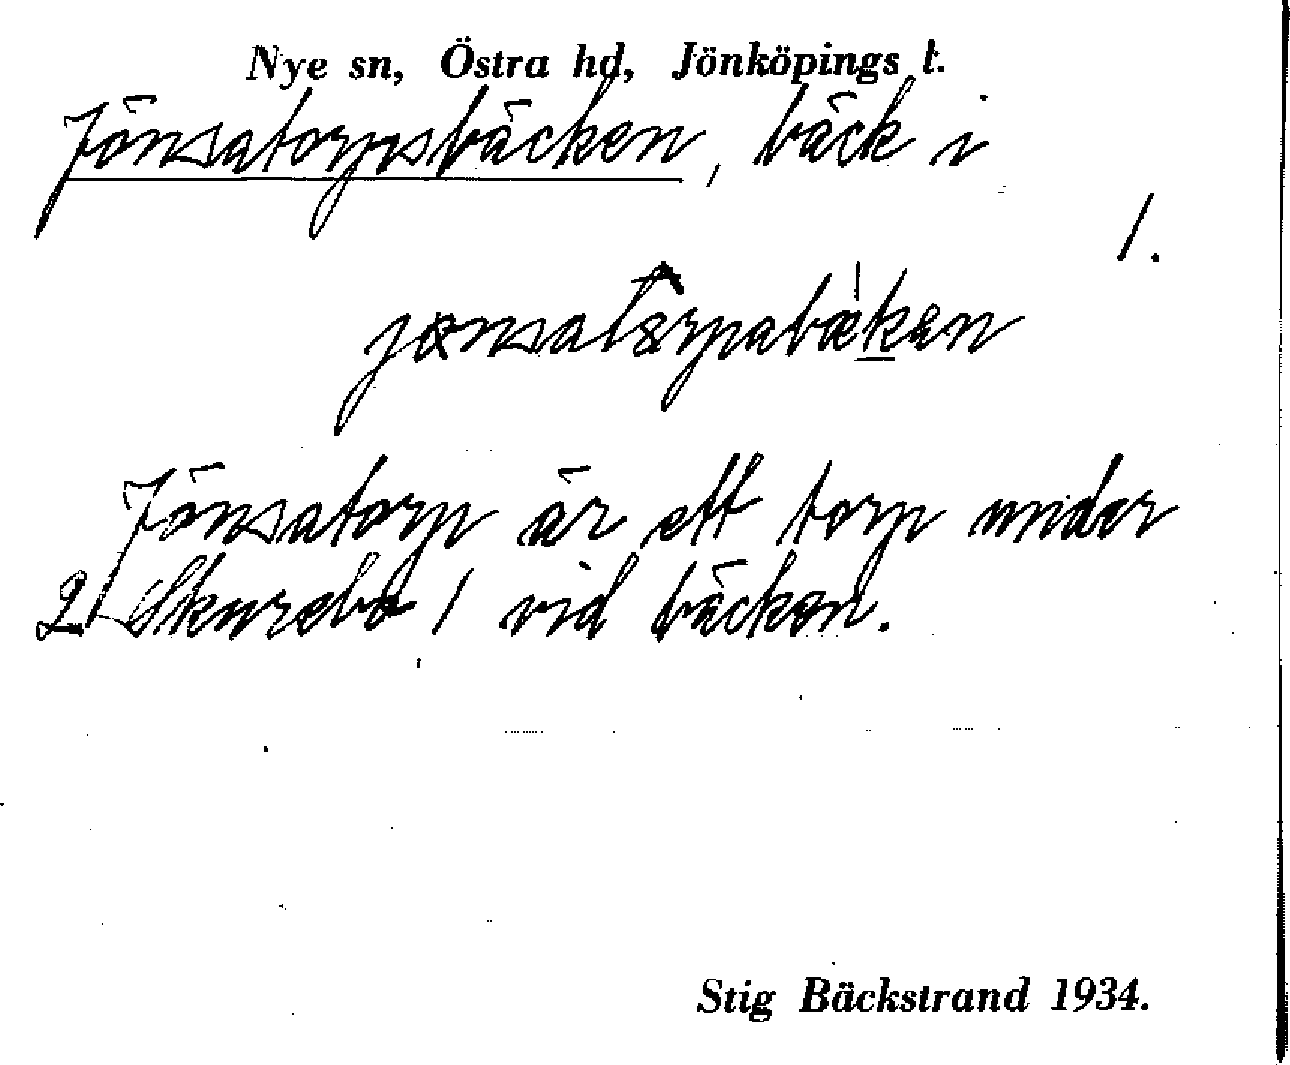 Nye sn, Östra hd, Jönköpings l.
Jönsatorpsbäcken, bäck i
1.
Jönsatorp är ett torp under
2 Skurebo 1 vid bäcken.
Stig Bäckstrand 1934.